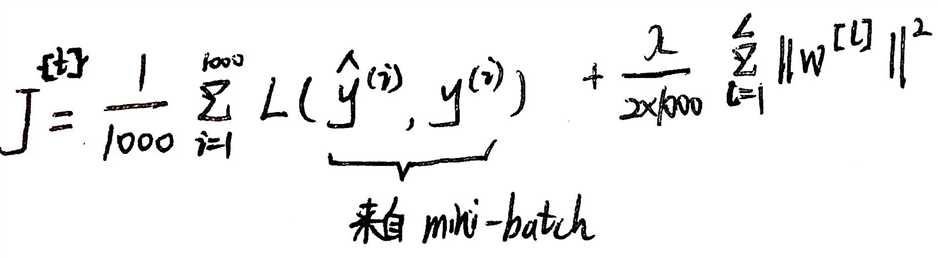 J^{\{t\}} = \frac{1}{1000} \sum_{i=1}^{1000} L(\hat{y}^{(i)}, y^{(i)}) + \frac{\lambda}{2×1000} \sum_{l=1}^{L} ||W^{[l]}||^2
来自 mini-batch